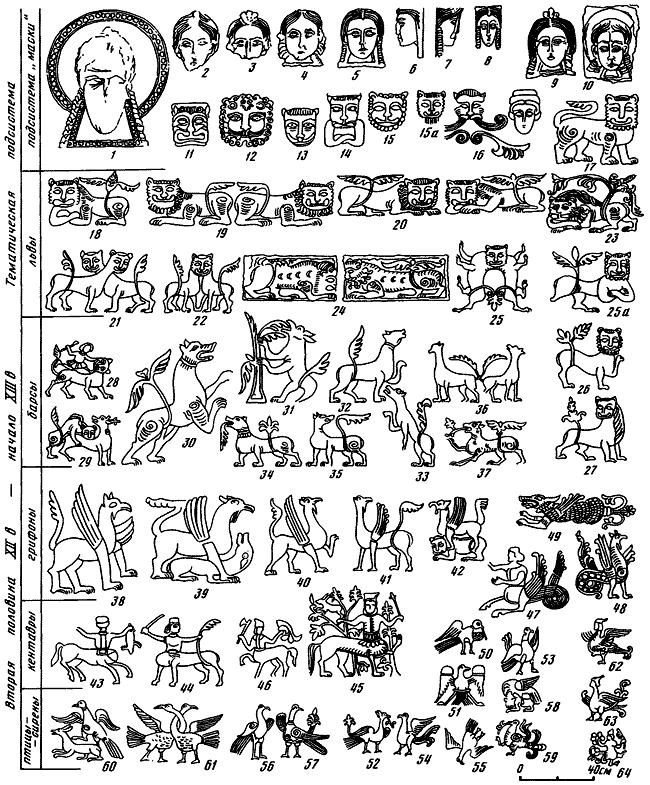 Вторая половина XII в — начала XIII в
Тематическая подсистема
подсистема „маски"
львы
барсы
грифоны
кентавры
птицы-
-сирены
1 2 3 4 5 6 7 8 9 10
11 12 13 14 15 15а 16 17
18 19 20 23
21 22 24 25 25а
28 31 32 36 26
29 30 34 35 33 37 27
38 39 40 41 42 49
47 48
43 44 46 45 50 53 62
51 58 63
60 61 56 57 52 54 55 59 64
0 40см